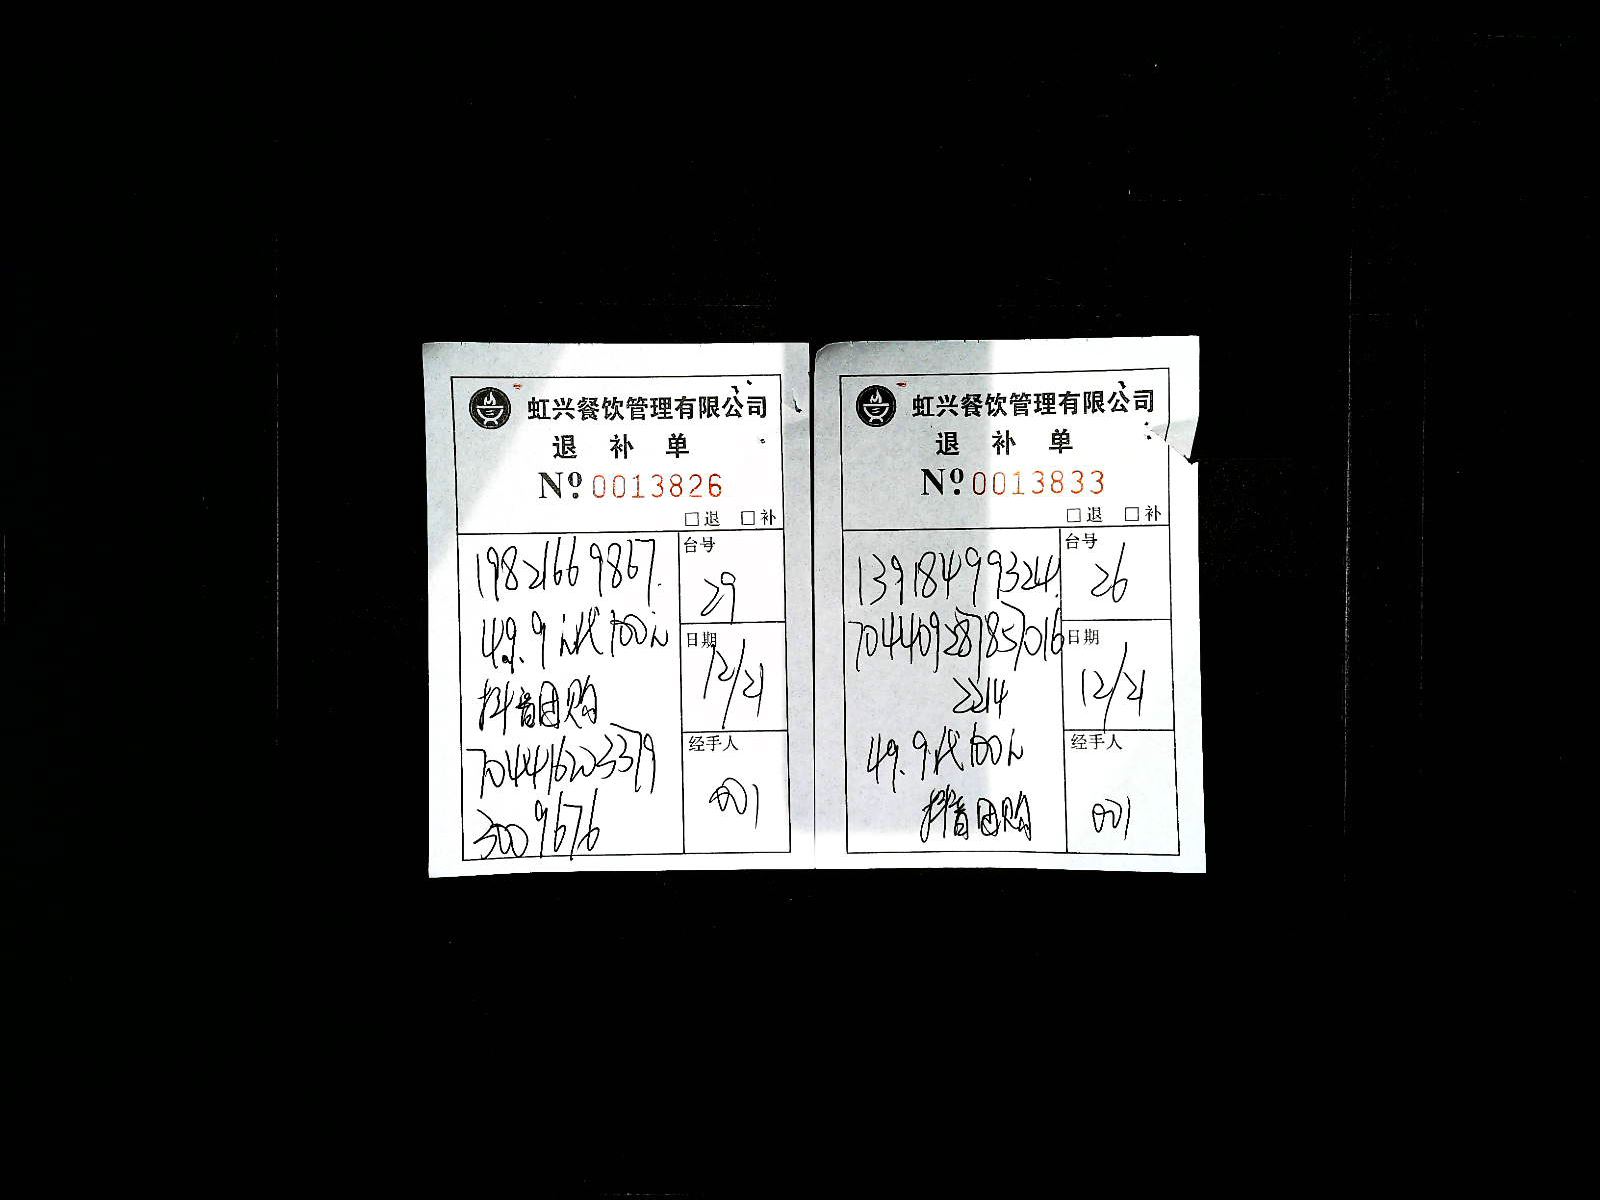 虹兴餐饮管理有限公司
退 补 单
Nº 0013826
□退 □补
19821669867.
49.9元代100元
抖音团购
704416203379
3009676
台号
29
日期
12/21
经手人
001
虹兴餐饮管理有限公司
退 补 单
Nº 0013833
□退 □补
13918499324.
704409287857016
2214
49.9.代100元
抖音团购
台号
26
日期
12/21
经手人
001